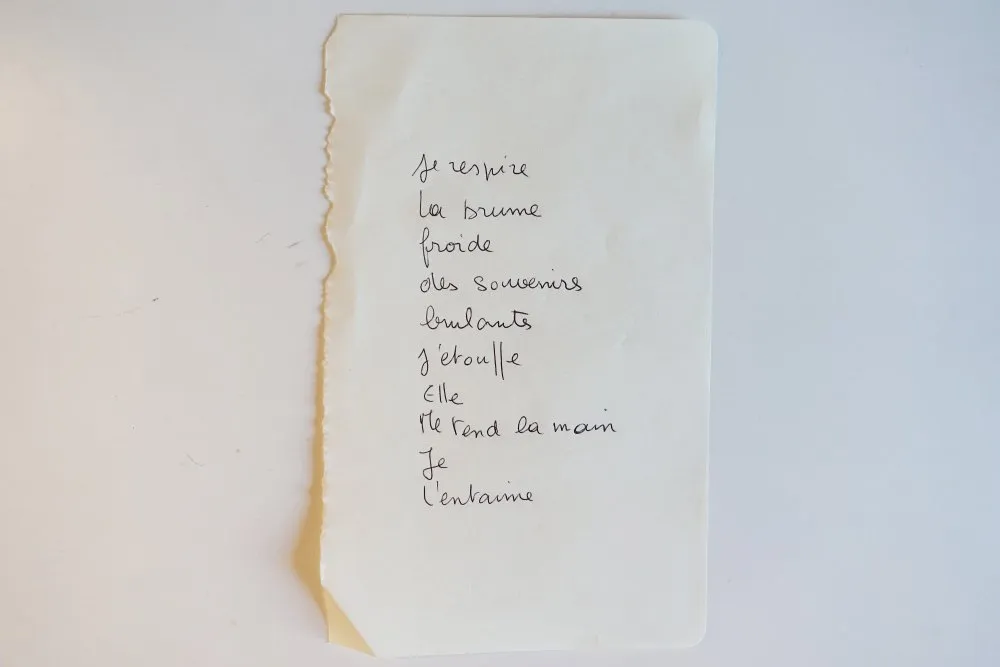 Je respire
la brume
froide
des souvenirs
brulants
J'étouffe
Elle
Me tend la main
Je
l'entaime